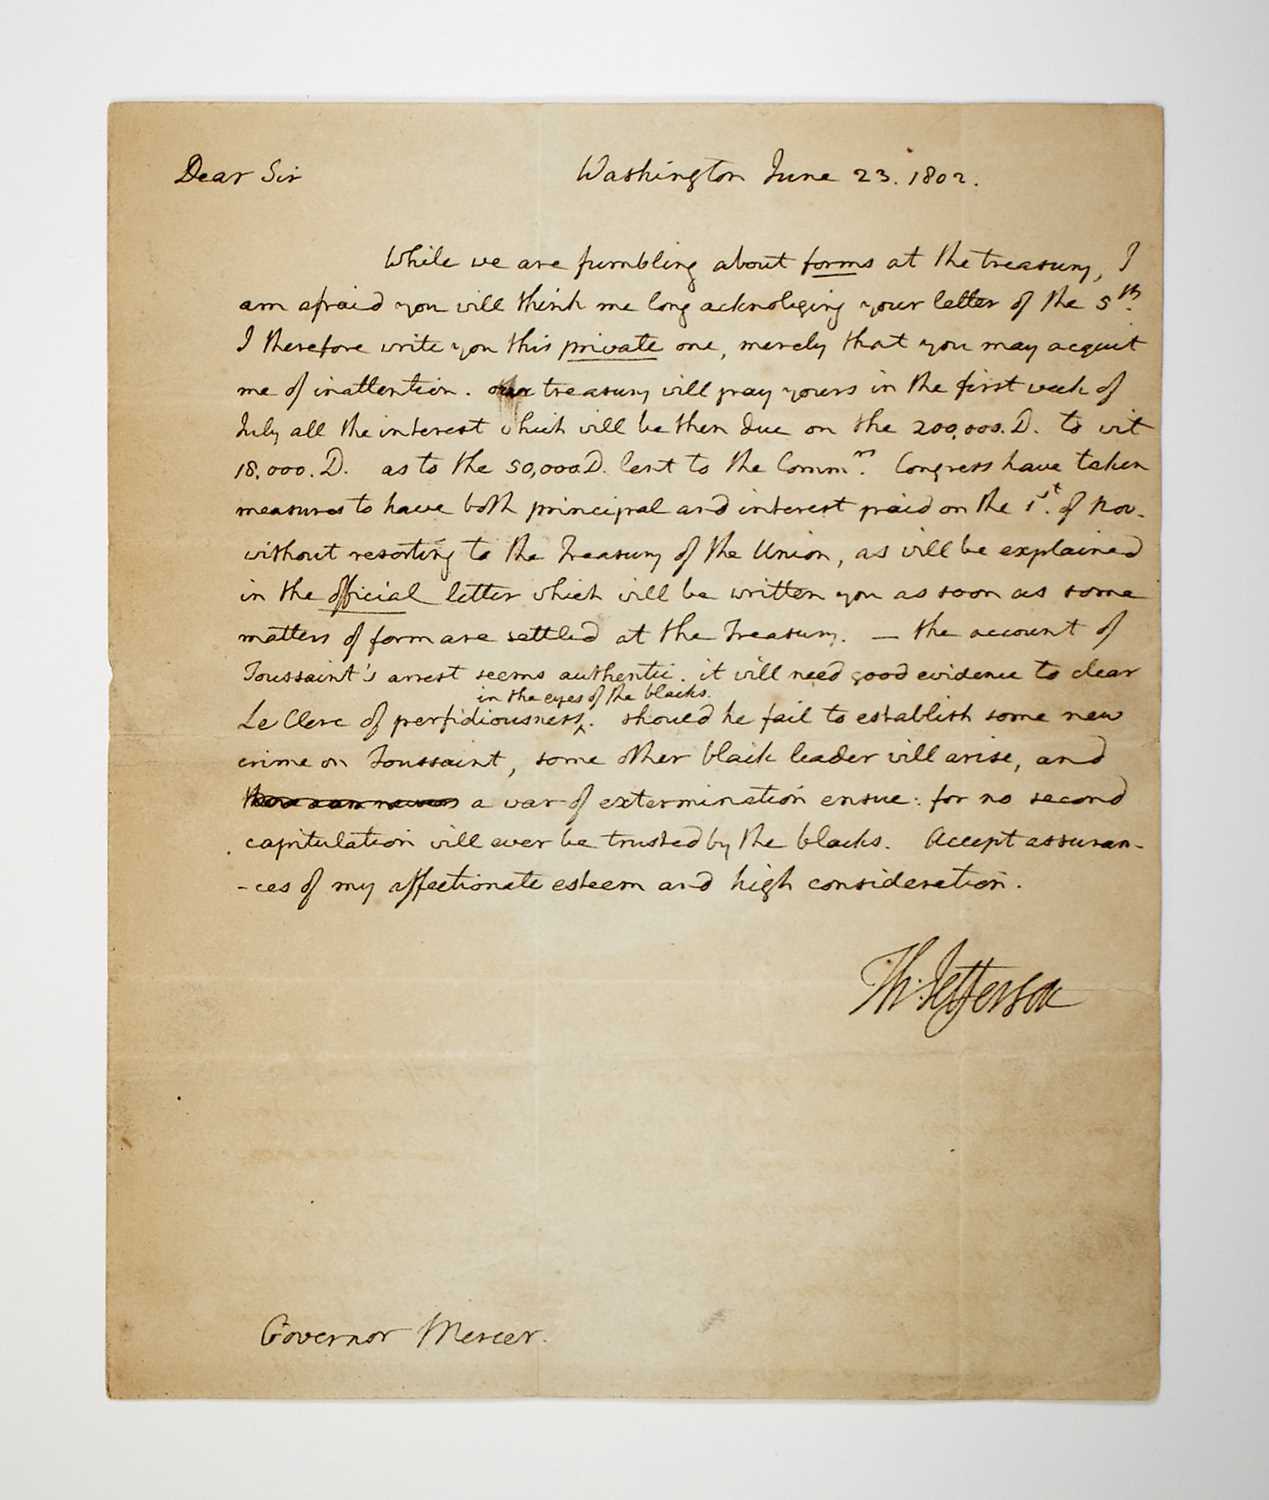 Dear Sir Washington June 23. 1802.
While we are fumbling about forms at the treasury, I
am afraid you will think me long acknoleging your letter of the 5th.
I therefore write you this private one, merely that you may acquit
me of inattention. our treasury will pay yours in the first week of
July all the interest which will be then due on the 200,000. D. to wit
18,000. D. as to the 50,000 D. lent to the Commrs. Congress have taken
measures to have both principal and interest paid on the 1st. of Nov.
without resorting to the Treasury of the Union, as will be explained
in the official letter which will be written you as soon as some
matters of form are settled at the Treasury. — the account of
Toussaint's arrest seems authentic. it will need good evidence to clear
in the eyes of the blacks.
Le Clerc of perfidiousness ‸. should he fail to establish some new
crime on Toussaint, some other black leader will arise, and
a war of extermination ensue: for no second
capitulation will ever be trusted by the blacks. Accept assuran-
-ces of my affectionate esteem and high consideration.
Th: Jefferson
Governor Mercer.